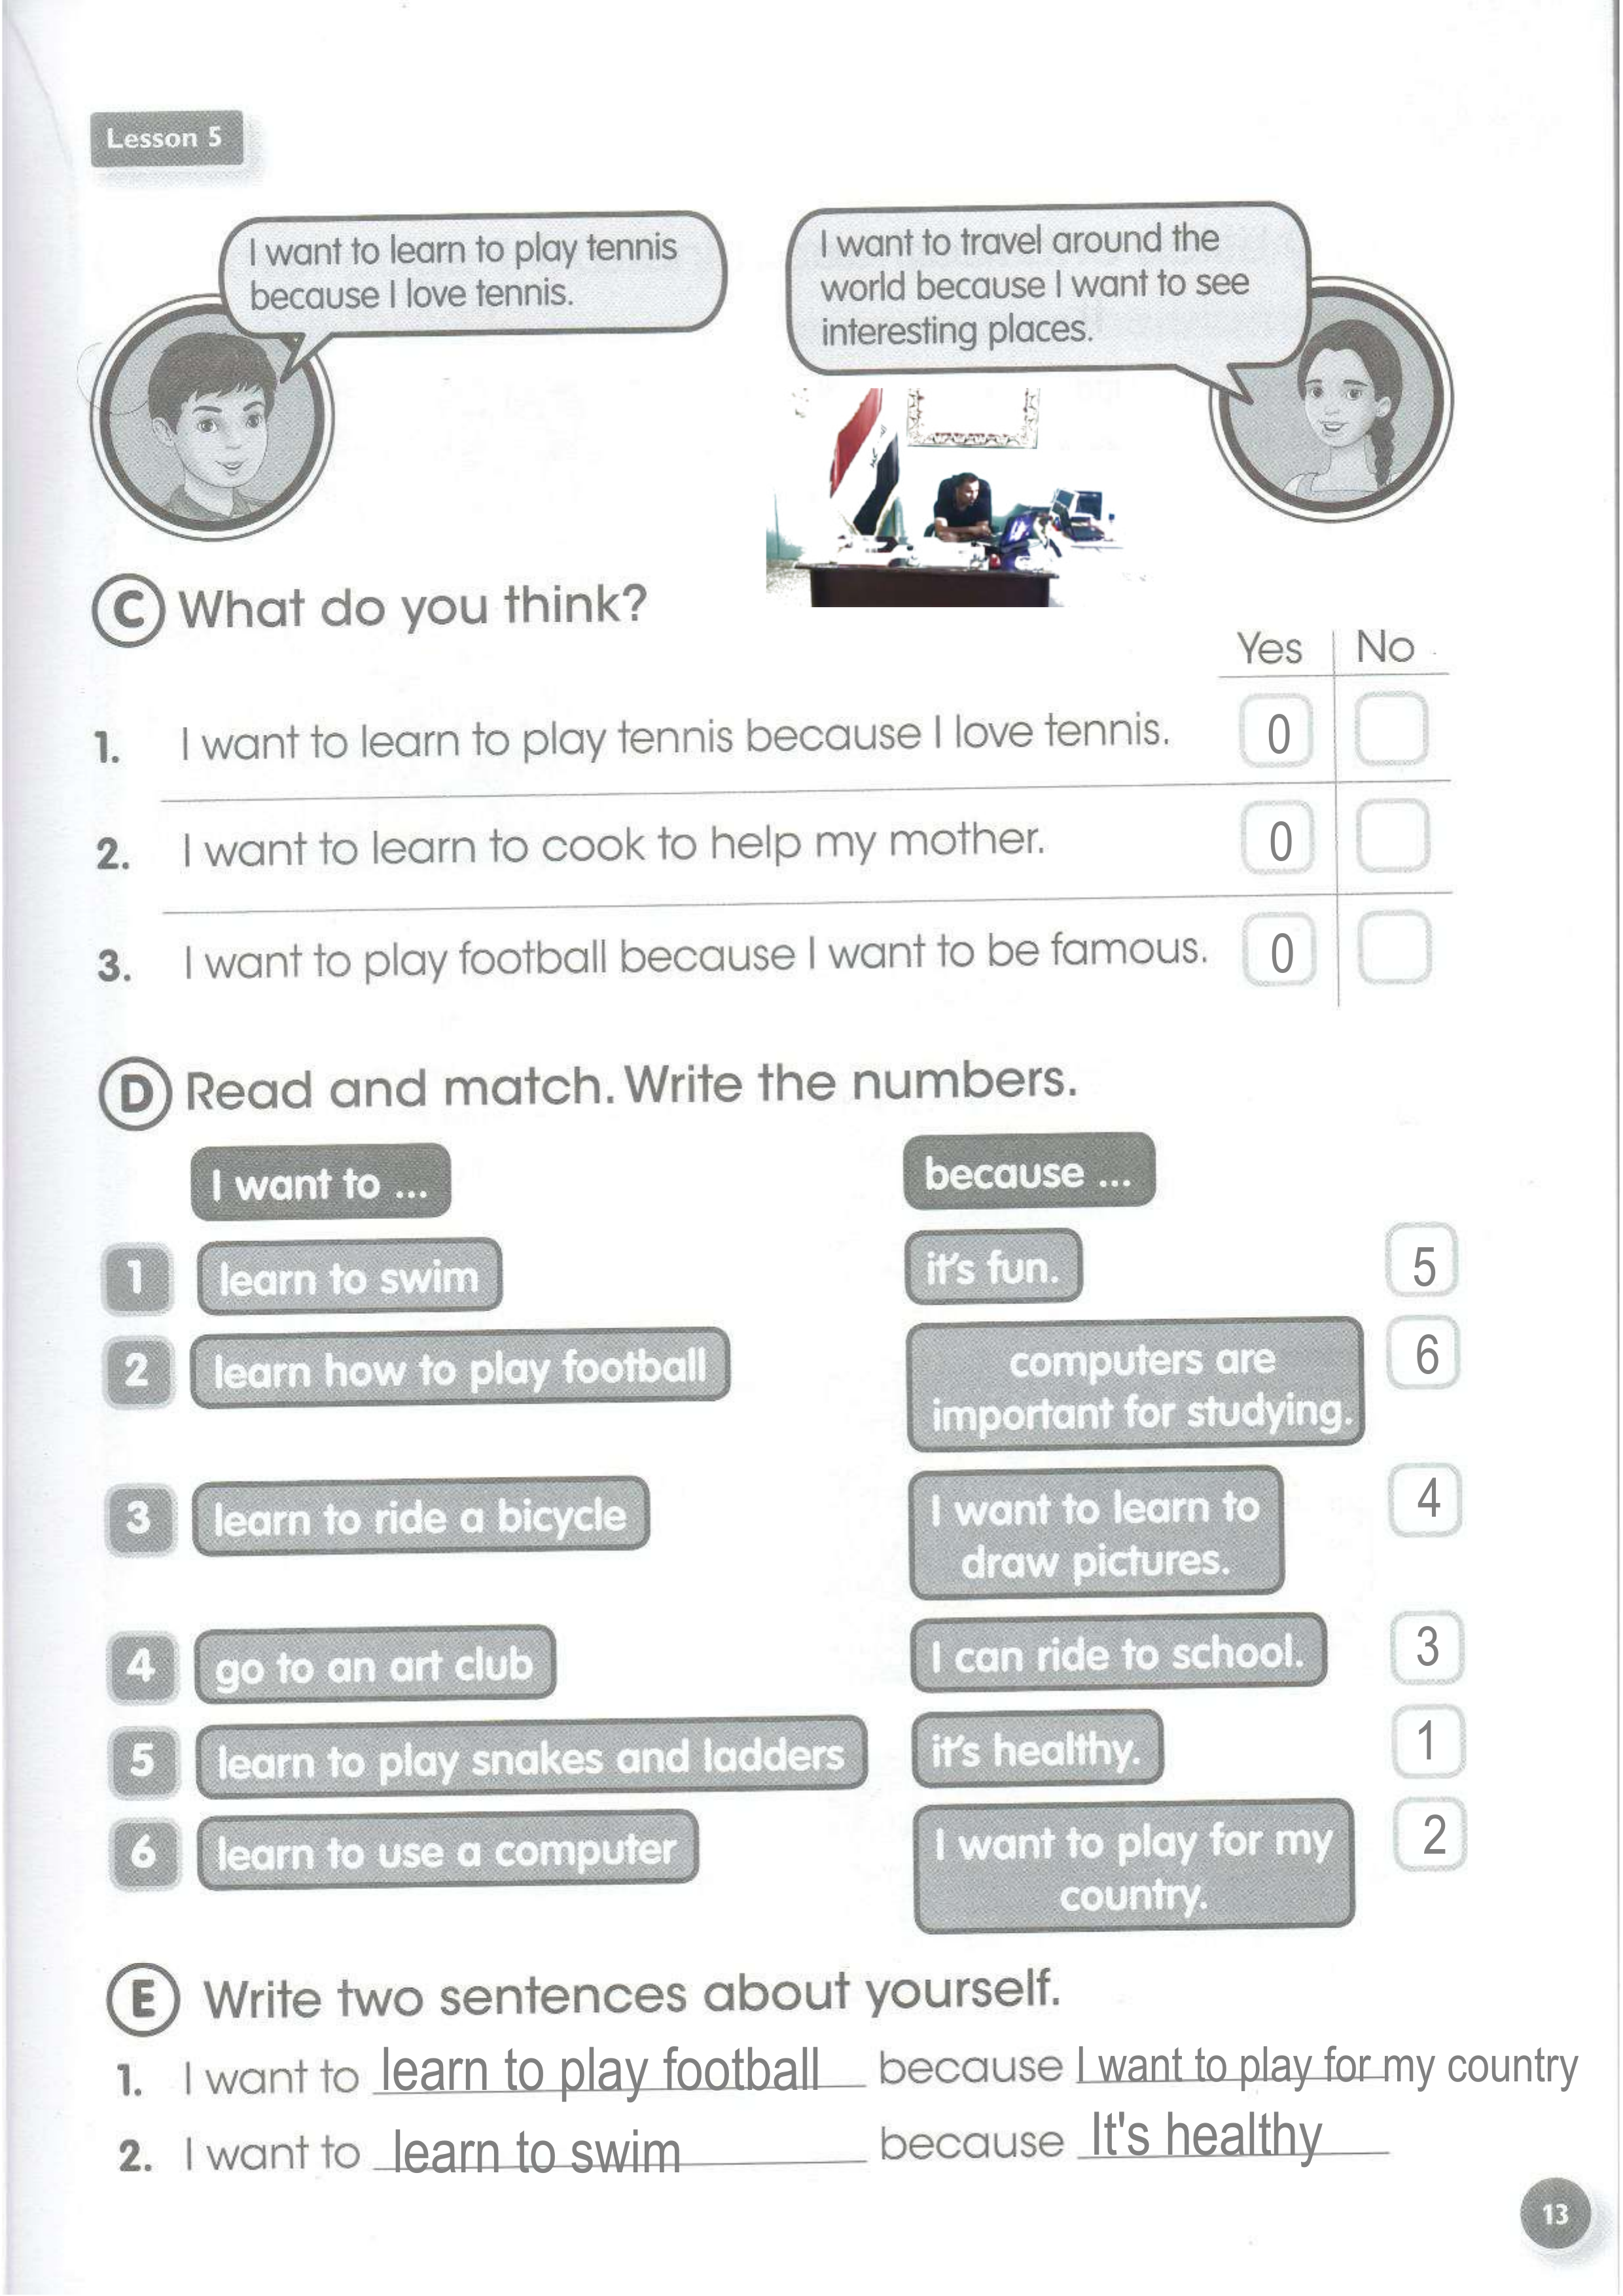 Lesson 5
I want to learn to play tennis
because I love tennis.
I want to travel around the
world because I want to see
interesting places.
C What do you think?
Yes No
1. I want to learn to play tennis because I love tennis. 0
2. I want to learn to cook to help my mother. 0
3. I want to play football because I want to be famous. 0
D Read and match. Write the numbers.
I want to ... because ...
1 learn to swim it's fun. 5
2 learn how to play football computers are
important for studying. 6
3 learn to ride a bicycle I want to learn to
draw pictures. 4
4 go to an art club I can ride to school. 3
5 learn to play snakes and ladders it's healthy. 1
6 learn to use a computer I want to play for my
country. 2
E Write two sentences about yourself.
1. I want to learn to play football because I want to play for my country
2. I want to learn to swim because It's healthy
13